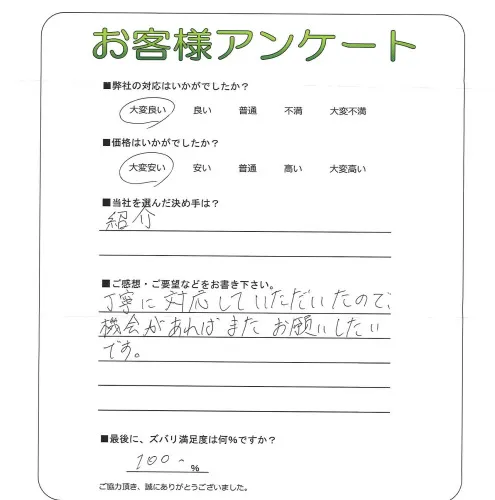 お客様アンケート
■弊社の対応はいかがでしたか？
大変良い 良い 普通 不満 大変不満
■価格はいかがでしたか？
大変安い 安い 普通 高い 大変高い
■当社を選んだ決め手は？
紹介
■ご感想・ご要望などをお書き下さい。
丁寧に対応していただいたので、
機会があればまたお願いしたい
です。
■最後に、ズバリ満足度は何%ですか？
100 %
ご協力頂き、誠にありがとうございました。